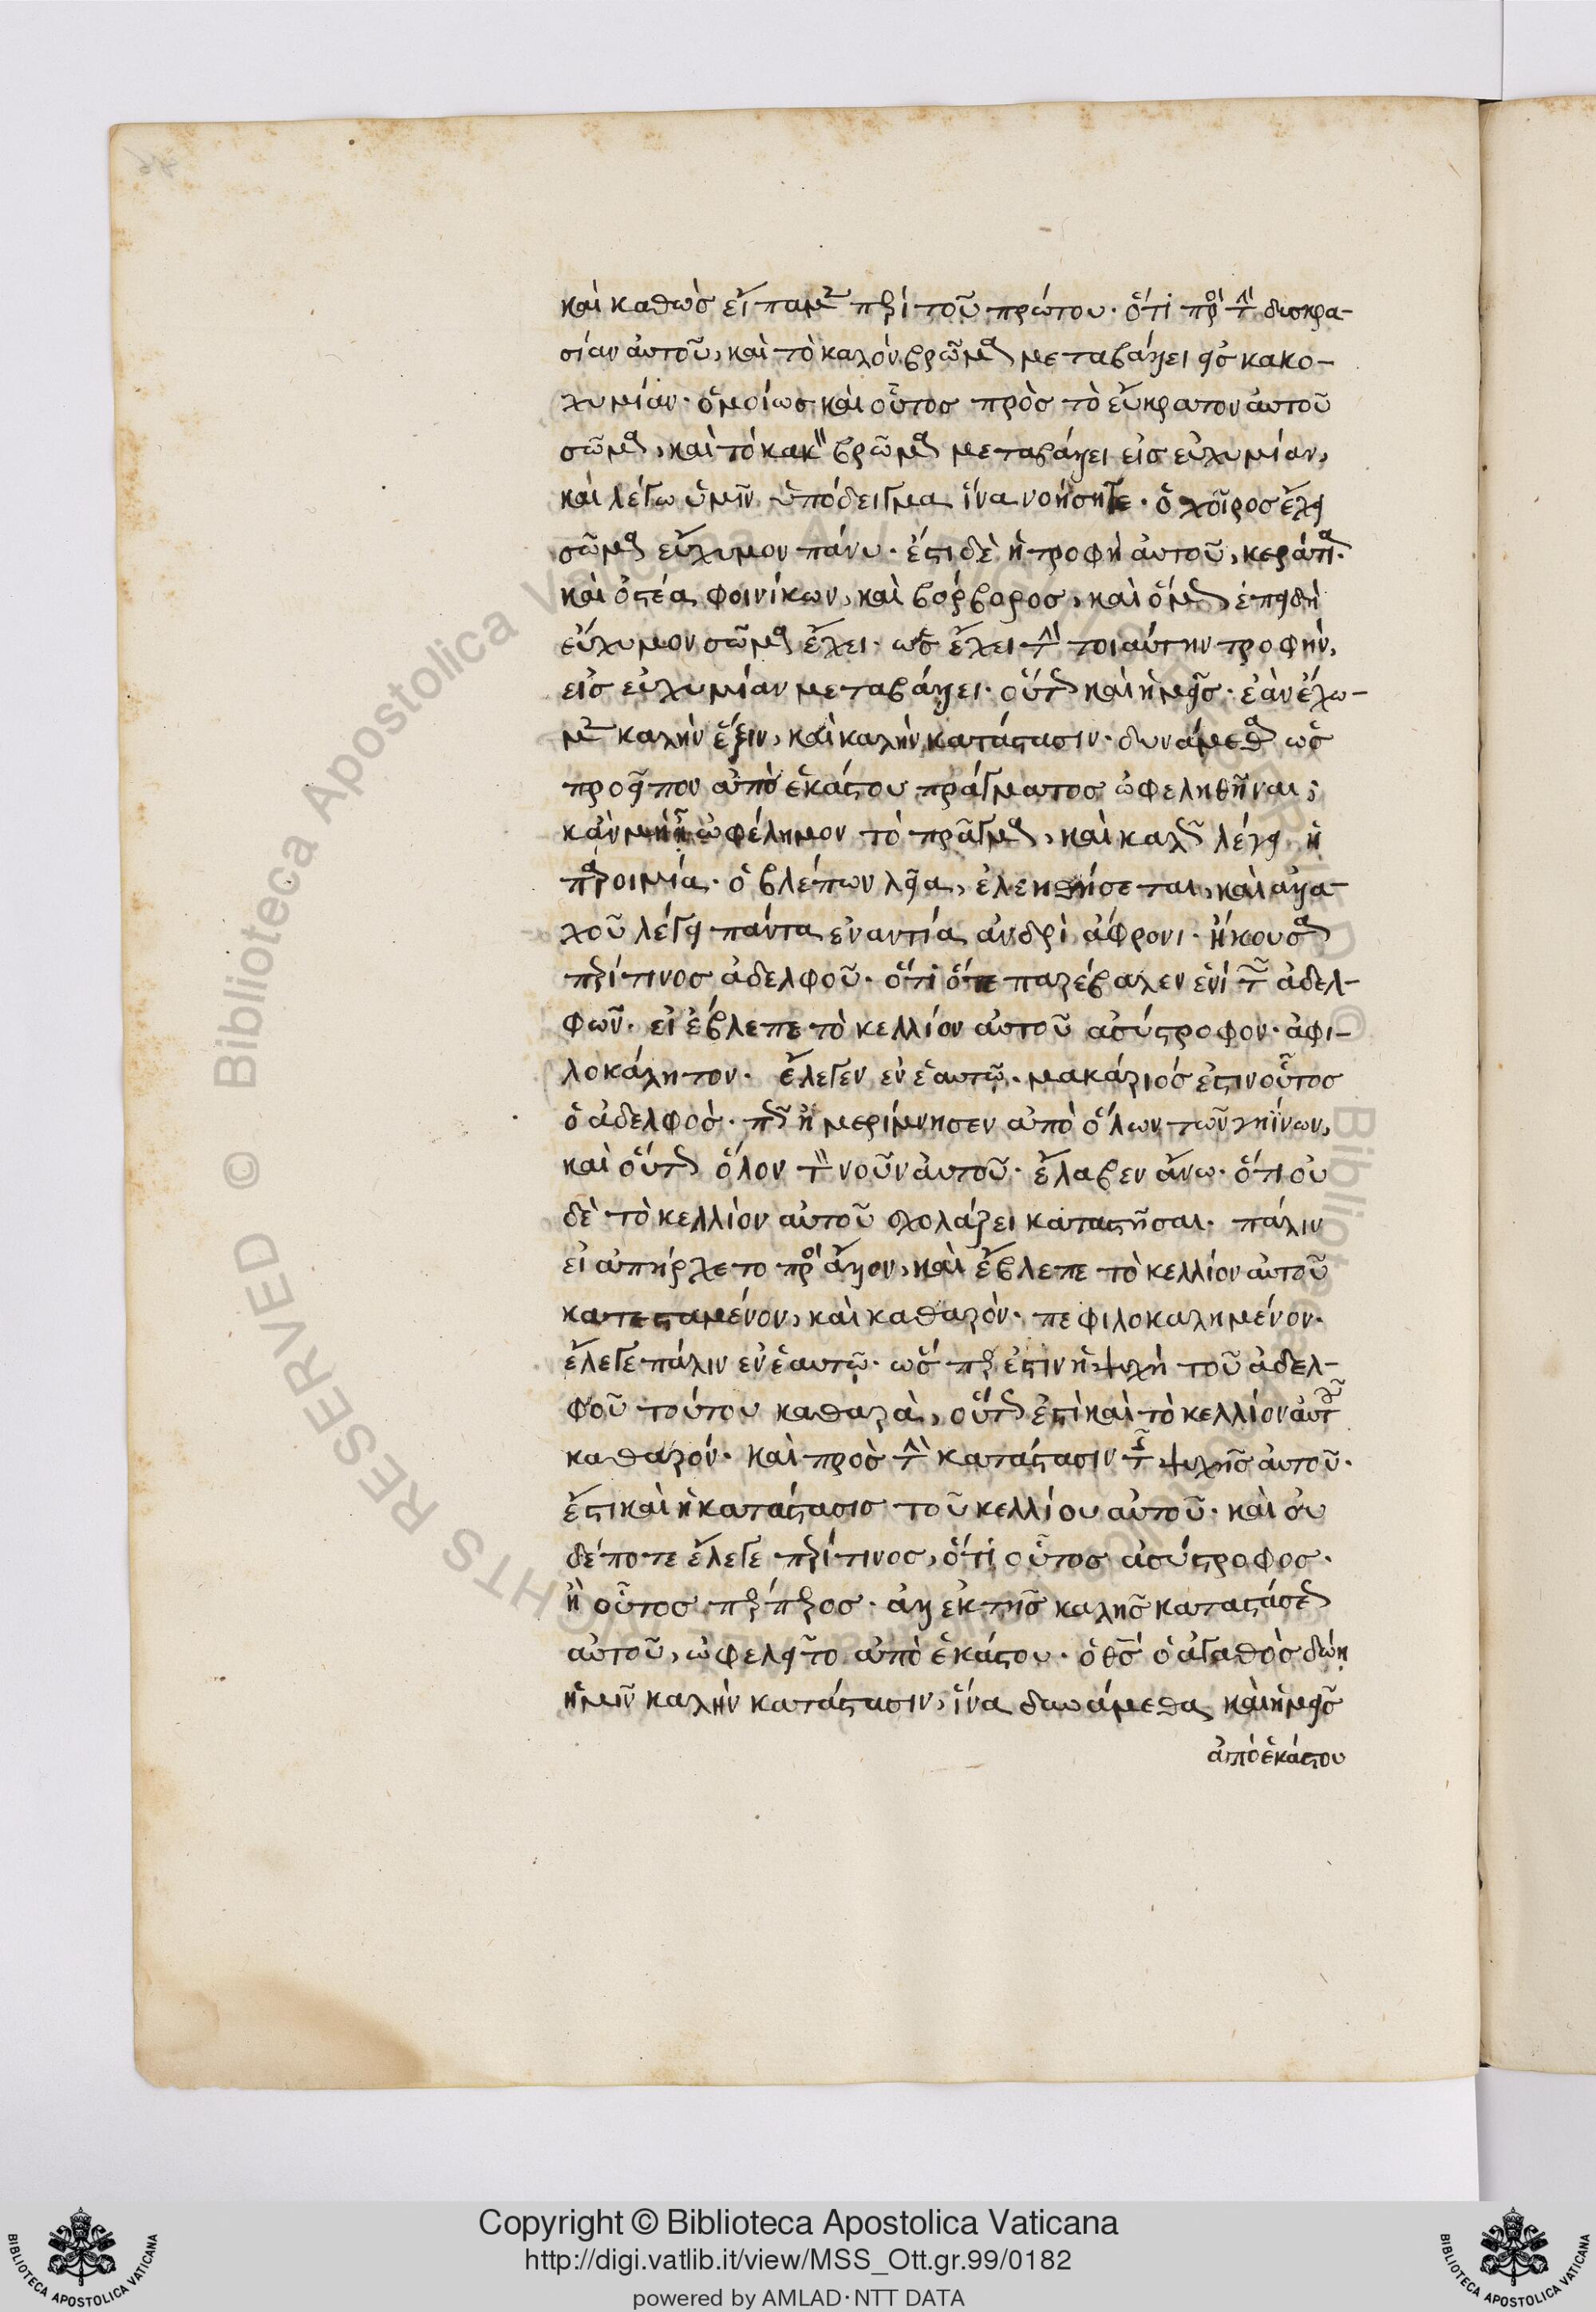 καὶ καθὼσ εἴπαμεν περὶ τοῦ πρώτου· ὅτι πρὸσ τὴν δισκρα-
σίαν αὐτοῦ, καὶ τὸ καλὸν βρῶμα μεταβάλλει εἰσ κακο-
χυμίαν· ὁμοίωσ καὶ οὗτοσ πρὸσ τὸ εὔκρατον αὐτοῦ
σῶμα, καὶ τὸ κακὸν βρῶμα μεταβάλλει εἰσ εὐχυμίαν,
καὶ λέγω ὑμῖν ὑπόδειγμα ἵνα νοήσητε· ὁ χοῖροσ ἔχει
σῶμα εὔχυμον πάνυ· ἔστι δὲ ἡ τροφὴ αὐτοῦ, κεράτια·
καὶ ὀστέα φοινίκων, καὶ βόρβοροσ, καὶ ὅμωσ, ἐπειδὴ
εὔχυμον σῶμα ἔχει· ὡσ ἔχει τὴν τοιαύτην τροφὴν,
εἰσ εὐχυμίαν μεταβάλλει· οὕτωσ καὶ ἡμεῖσ· ἐὰν ἔχω-
μεν καλὴν ἕξιν, καὶ καλὴν κατάστασιν· δυνάμεθα ὡσ
προεῖπον ἀπὸ ἑκάστου πράγματοσ ὠφεληθῆναι,
κἀν μὴ ᾖ ὠφέλημον τὸ πρᾶγμα, καὶ καλῶσ λέγει ἡ
παροιμία· ὁ βλέπων λεῖα, ἐλεηθήσεται, καὶ ἀλλα-
χοῦ λέγει πάντα ἐναντία ἀνδρὶ ἄφρονι· ἤκουσα
περί τινοσ ἀδελφοῦ· ὅτι ὅτε παρέβαλεν ἑνί τῶν ἀδελ-
φῶν· εἰ ἔβλεπε τὸ κελλίον αὐτοῦ ἀσύστροφον· ἀφι-
λοκάλητον· ἔλεγεν ἐν ἑαυτῷ· μακάριόσ ἐστιν οὗτοσ
ὁ ἀδελφὸσ· πῶσ ἠμερίμνησεν ἀπὸ ὅλων τῶν γηΐνων,
καὶ οὕτωσ ὅλον τὸν νοῦν αὐτοῦ· ἔλαβεν ἄνω· ὅτι οὐ
δὲ τὸ κελλίον αὐτοῦ σχολάζει καταστῆσαι· πάλιν
εἰ ἀπήρχετο πρὸσ ἄλλον, καὶ ἔβλεπε τὸ κελλίον αὐτοῦ
κατεσταμένον, καὶ καθαρὸν· πεφιλοκαλημένον·
ἔλεγε πάλιν ἐν ἑαυτῷ· ὥσπερ ἐστιν ἡ ψυχὴ τοῦ ἀδελ-
φοῦ τούτου καθαρὰ, οὕτωσ ἐστὶ καὶ τὸ κελλίον αὐτοῦ
καθαρόν· καὶ πρὸσ τὴν κατάστασιν τῆσ ψυχῆσ αὐτοῦ·
ἔστι καὶ ἡ κατάστασισ τοῦ κελλίου αὐτοῦ· καὶ οὐ
δέποτε ἔλεγε περί τινοσ, ὅτι οὗτοσ ἀσύστροφοσ·
ἢ οὗτοσ πέρπεροσ· ἀλλ' ἐκ τῆσ καλῆσ καταστάσεωσ
αὐτοῦ, ὠφελεῖτο ἀπὸ ἑκάστου· ὁ θσ ὁ ἀγαθὸσ δώη
ἡμῖν καλὴν κατάστασιν, ἵνα δυνάμεθα καὶ ἡμεῖσ
ἀπὸ ἑκάστου
Copyright © Biblioteca Apostolica Vaticana
http://digi.vatlib.it/view/MSS_Ott.gr.99/0182
powered by AMLAD·NTT DATA